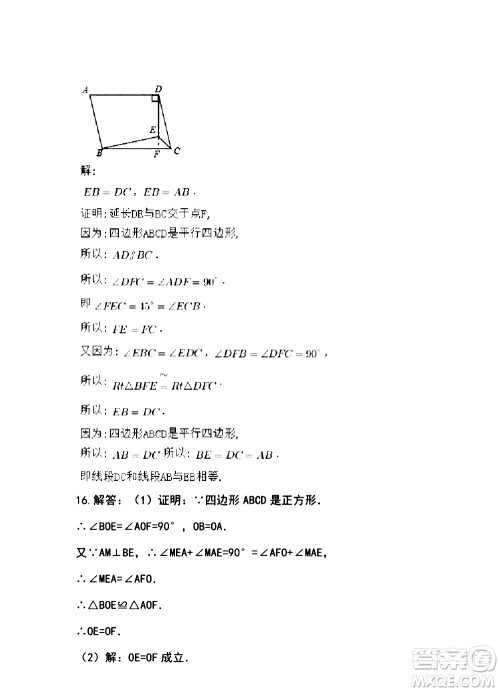 A D
E
B F C
解:
EB = DC, EB = AB.
证明:延长DE与BC交于点F,
因为:四边形ABCD是平行四边形,
所以: AD∥BC.
所以: ∠DFC = ∠ADF = 90°.
即 ∠FEC = 45° = ∠ECB.
所以: FE = FC.
又因为: ∠EBC = ∠EDC, ∠DFB = ∠DFC = 90°,
所以: Rt△BFE ≅ Rt△DFC.
所以: EB = DC.
因为:四边形ABCD是平行四边形,
所以: AB = DC 所以: BE = DC = AB.
即线段DC和线段AB与EB相等.
16.解答:(1)证明:∵四边形 ABCD 是正方形.
∴∠BOE=∠AOF=90°,OB=OA.
又∵AM⊥BE,∴∠MEA+∠MAE=90°=∠AFO+∠MAE,
∴∠MEA=∠AFO.
∴△BOE≌△AOF.
∴OE=OF.
(2)解:OE=OF 成立.
答案圈
MXQE.COM